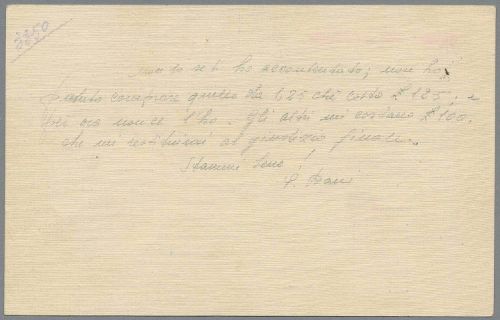 3350
ti ho accontentato; non ho
potuto comprare quello da 1,25 che costa £ 125; e
per ora non ce l'ho. Gli altri mi costano £ 100.
che mi restituirai al giudizio finale.
Stammi bene!